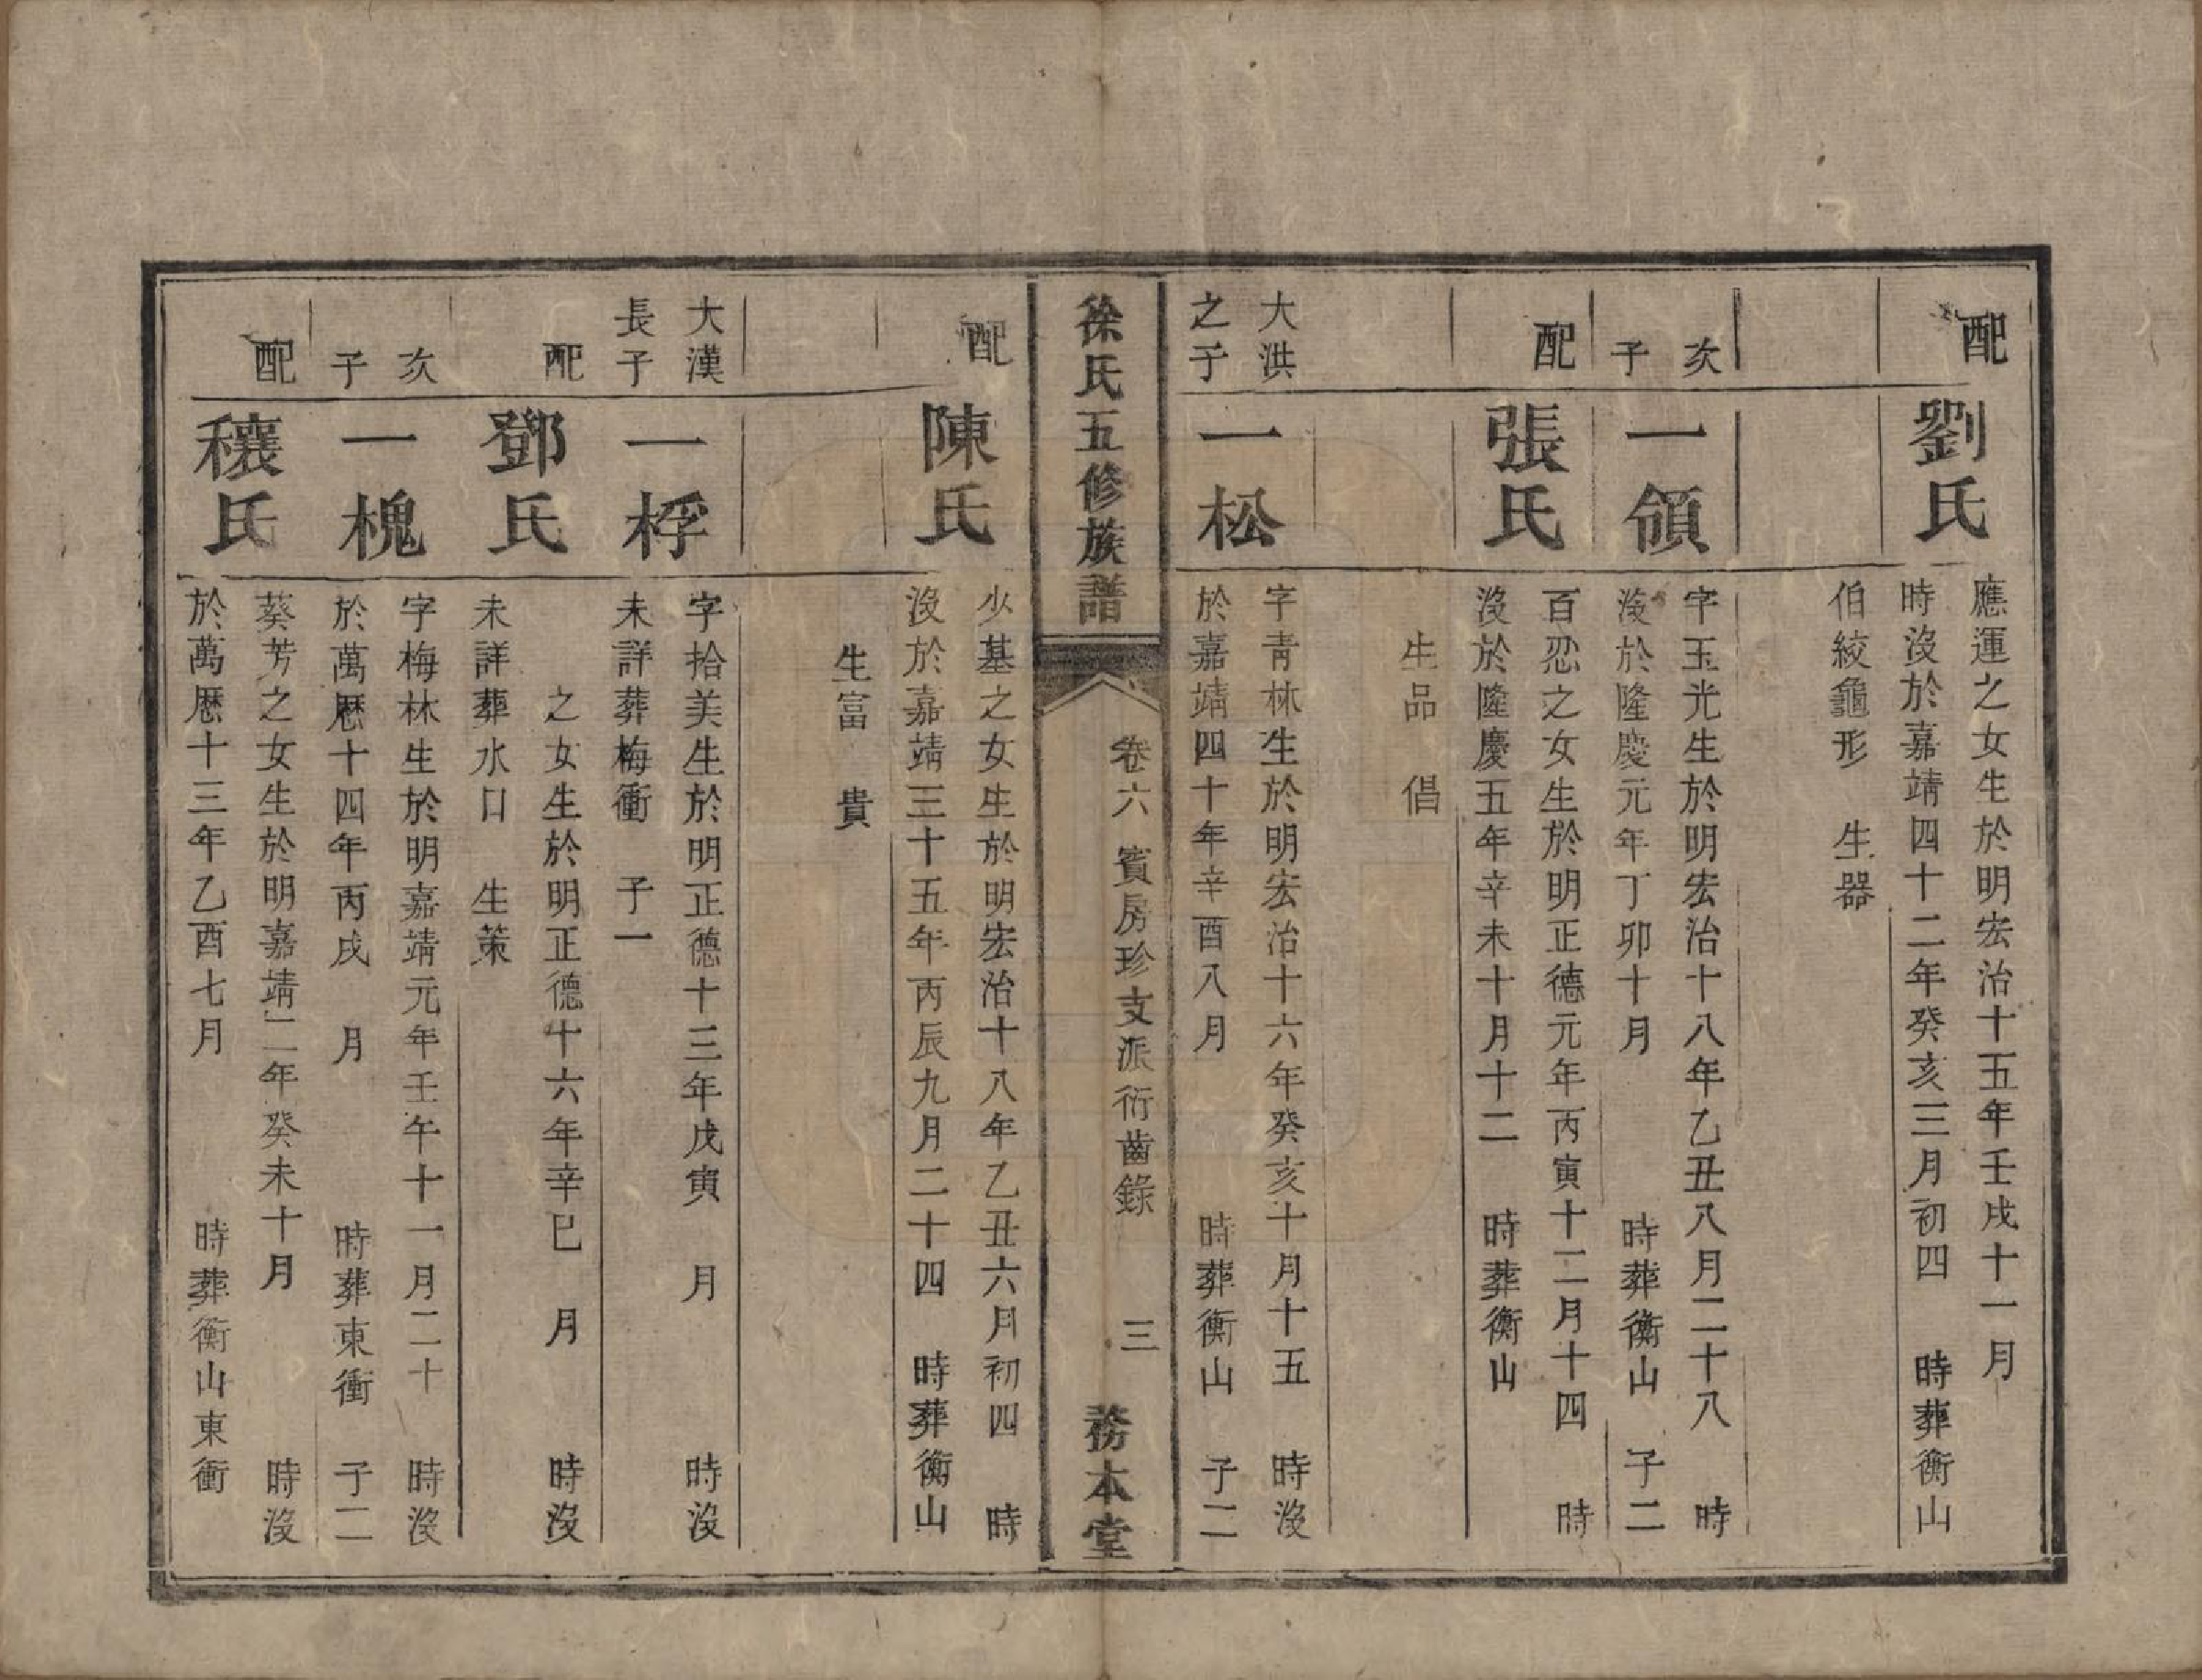 配
劉氏
應運之女生於明宏治十五年壬戌十一月
時沒於嘉靖四十二年癸亥三月初四　時葬衡山
伯絞龜形　生器
次
子
一領
字玉光生於明宏治十八年乙丑八月二十八　時
沒於隆慶元年丁卯十月　時葬衡山　子二
配
張氏
百忍之女生於明正德元年丙寅十二月十四　時
沒於隆慶五年辛未十月十二　時葬衡山
生品　倡
大洪
之子
一松
字青林生於明宏治十六年癸亥十月十五　時沒
於嘉靖四十年辛酉八月　時葬衡山　子二
徐氏五修族譜
卷六　賓房珍支派衍齒錄　三
務本堂
配
陳氏
少基之女生於明宏治十八年乙丑六月初四　時
沒於嘉靖三十五年丙辰九月二十四　時葬衡山
生富　貴
大漢
長子
一桴
字拾美生於明正德十三年戊寅　月　時沒
未詳葬梅衝　子一
配
鄧氏
之女生於明正德十六年辛巳　月　時沒
未詳葬水口　生策
次
子
一槐
字梅林生於明嘉靖元年壬午十一月二十　時沒
於萬曆十四年丙戌　月　時葬東衝　子二
配
穰氏
葵芳之女生於明嘉靖二年癸未十月　時沒
於萬曆十三年乙酉七月　時葬衡山東衝